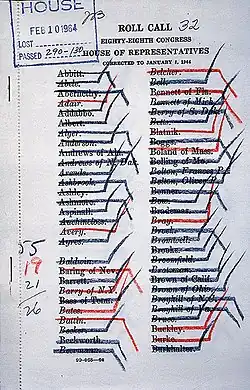 HOUSE
FEB 10 1964
LOST
PASSED 290-130
223
ROLL CALL 32
EIGHTY-EIGHTH CONGRESS
HOUSE OF REPRESENTATIVES
CORRECTED TO JANUARY 1, 1964
Abbitt
Abele
Abernethy
Adair
Addabbo
Albert
Alger
Anderson
Andrews of Ala.
Andrews of N. Dak.
Arends
Ashbrook
Ashley
Ashmore
Aspinall
Auchincloss
Avery
Ayres
Baldwin
Baring of Nev.
Barrett
Barry of N.Y.
Bass of Tenn.
Bates
Battin
Becker
Beckworth
Beermann
Belcher
Bell
Bennett of Fla.
Bennett of Mich.
Berry of S. Dak.
Betts
Blatnik
Boggs
Boland of Mass.
Bolling of Mo.
Bolton, Frances P.
Bolton, Oliver P.
Bonner
Bow
Brademas
Bray
Brock
Bromwell
Brooks
Broomfield
Brotzman
Brown of Calif.
Brown of Ohio
Broyhill of N.C.
Broyhill of Va.
Bruce
Buckley
Burke
Burkhalter
55
19
21
26